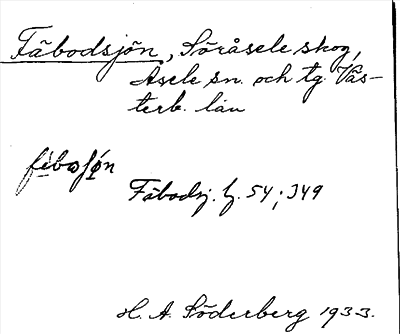 Fäbodsjön, Söråsele skog,
Åsele sn. och tg. Väs-
terb. län
Fäbodsj. bj. 54; 349
H. A. Söderberg 1933.